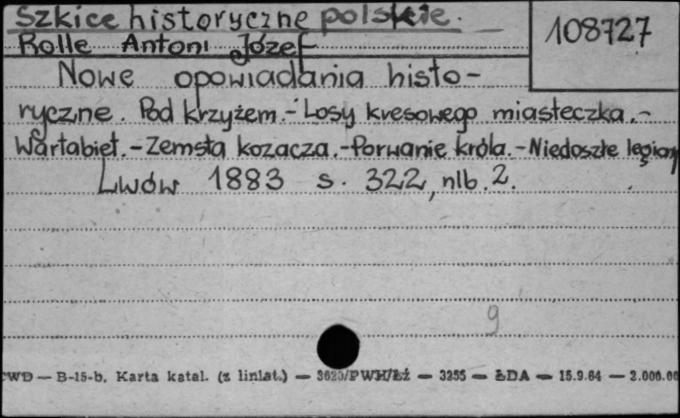 Szkice historyczne polskie.
108727
Rolle Antoni Józef
Nowe opowiadania histo-
ryczne. Pod krzyżem.- Losy kresowego miasteczka.-
Wartabiet.-Zemsta kozacza.-Porwanie króla.-Niedoszłe legiony
Lwów 1883 s. 322, nlb. 2.
9
CWD — B-15-b. Karta katal. (z liniat.) — 3623/PWH/Łź — 3255 — ŁDA — 15.9.64 — 2.000.00